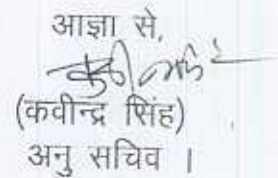 आज्ञा से,
(कवीन्द्र सिंह)
अनु सचिव ।